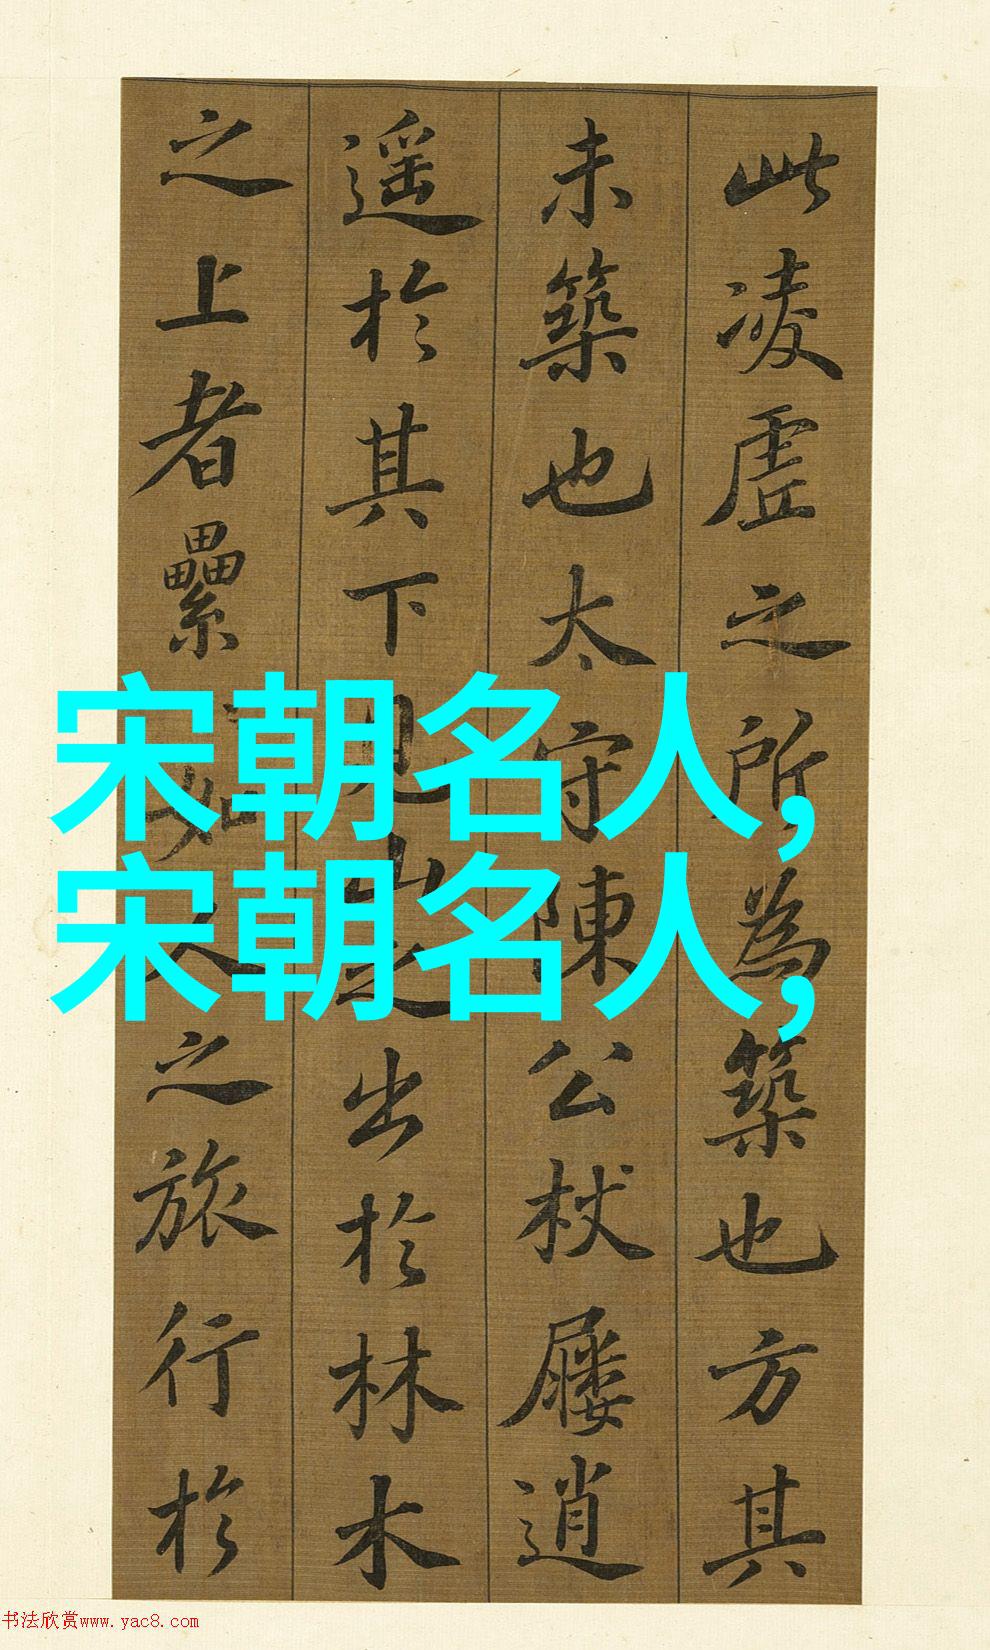 此凌虚之所為築也方其
未築也太守陳公杖屨逍
遥於其下見山之出於林木
之上者纍〻如人之旅行於
宋朝名人,
宋朝名人,
书法欣赏www.yac8.com